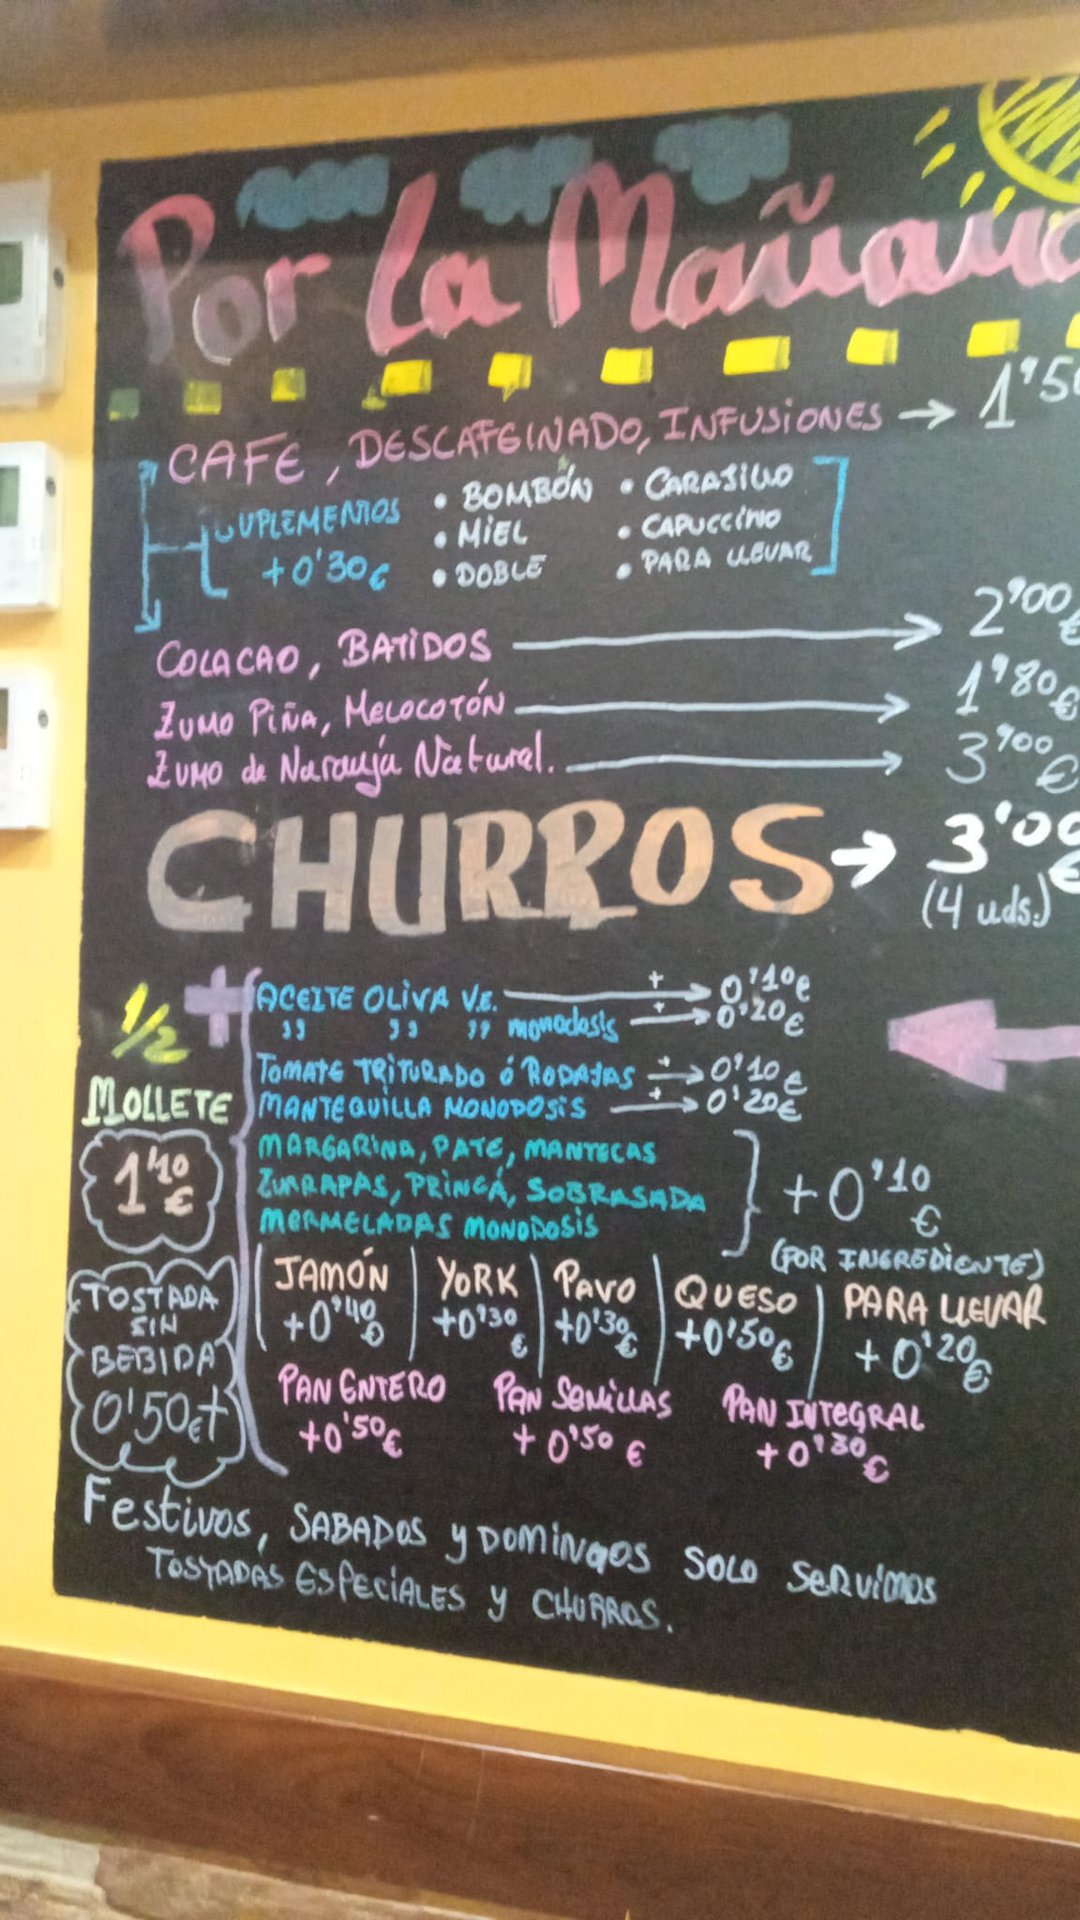 Por la Mañana
CAFE, DESCAFEINADO, INFUSIONES → 1'50
SUPLEMENTOS
+0'30€
• BOMBÓN • CARAJILLO
• MIEL • CAPUCCINO
• DOBLE • PARA LLEVAR
COLACAO, BATIDOS → 2'00€
ZUMO PIÑA, MELOCOTÓN → 1'80€
ZUMO de Naranja Natural. → 3'00€
CHURROS → 3'00€
(4 uds.)
1/2 +
MOLLETE
1'10
€
ACEITE OLIVA V.E. + → 0'10€
" " " monodosis + → 0'20€
TOMATE TRITURADO ó RODAJAS + → 0'10€
MANTEQUILLA MONODOSIS + → 0'20€
MARGARINA, PATE, MANTECAS
ZURRAPAS, PRINGÁ, SOBRASADA
MERMELADAS MONODOSIS
+0'10
€
(POR INGREDIENTE)
TOSTADA
SIN
BEBIDA
0'50€+
JAMÓN
+0'40€
YORK
+0'30€
PAVO
+0'30€
QUESO
+0'50€
PARA LLEVAR
+0'20€
PAN ENTERO
+0'50€
PAN SEMILLAS
+0'50€
PAN INTEGRAL
+0'30€
Festivos, SABADOS y DOMINGOS SOLO SERVIMOS
TOSTADAS ESPECIALES y CHURROS.